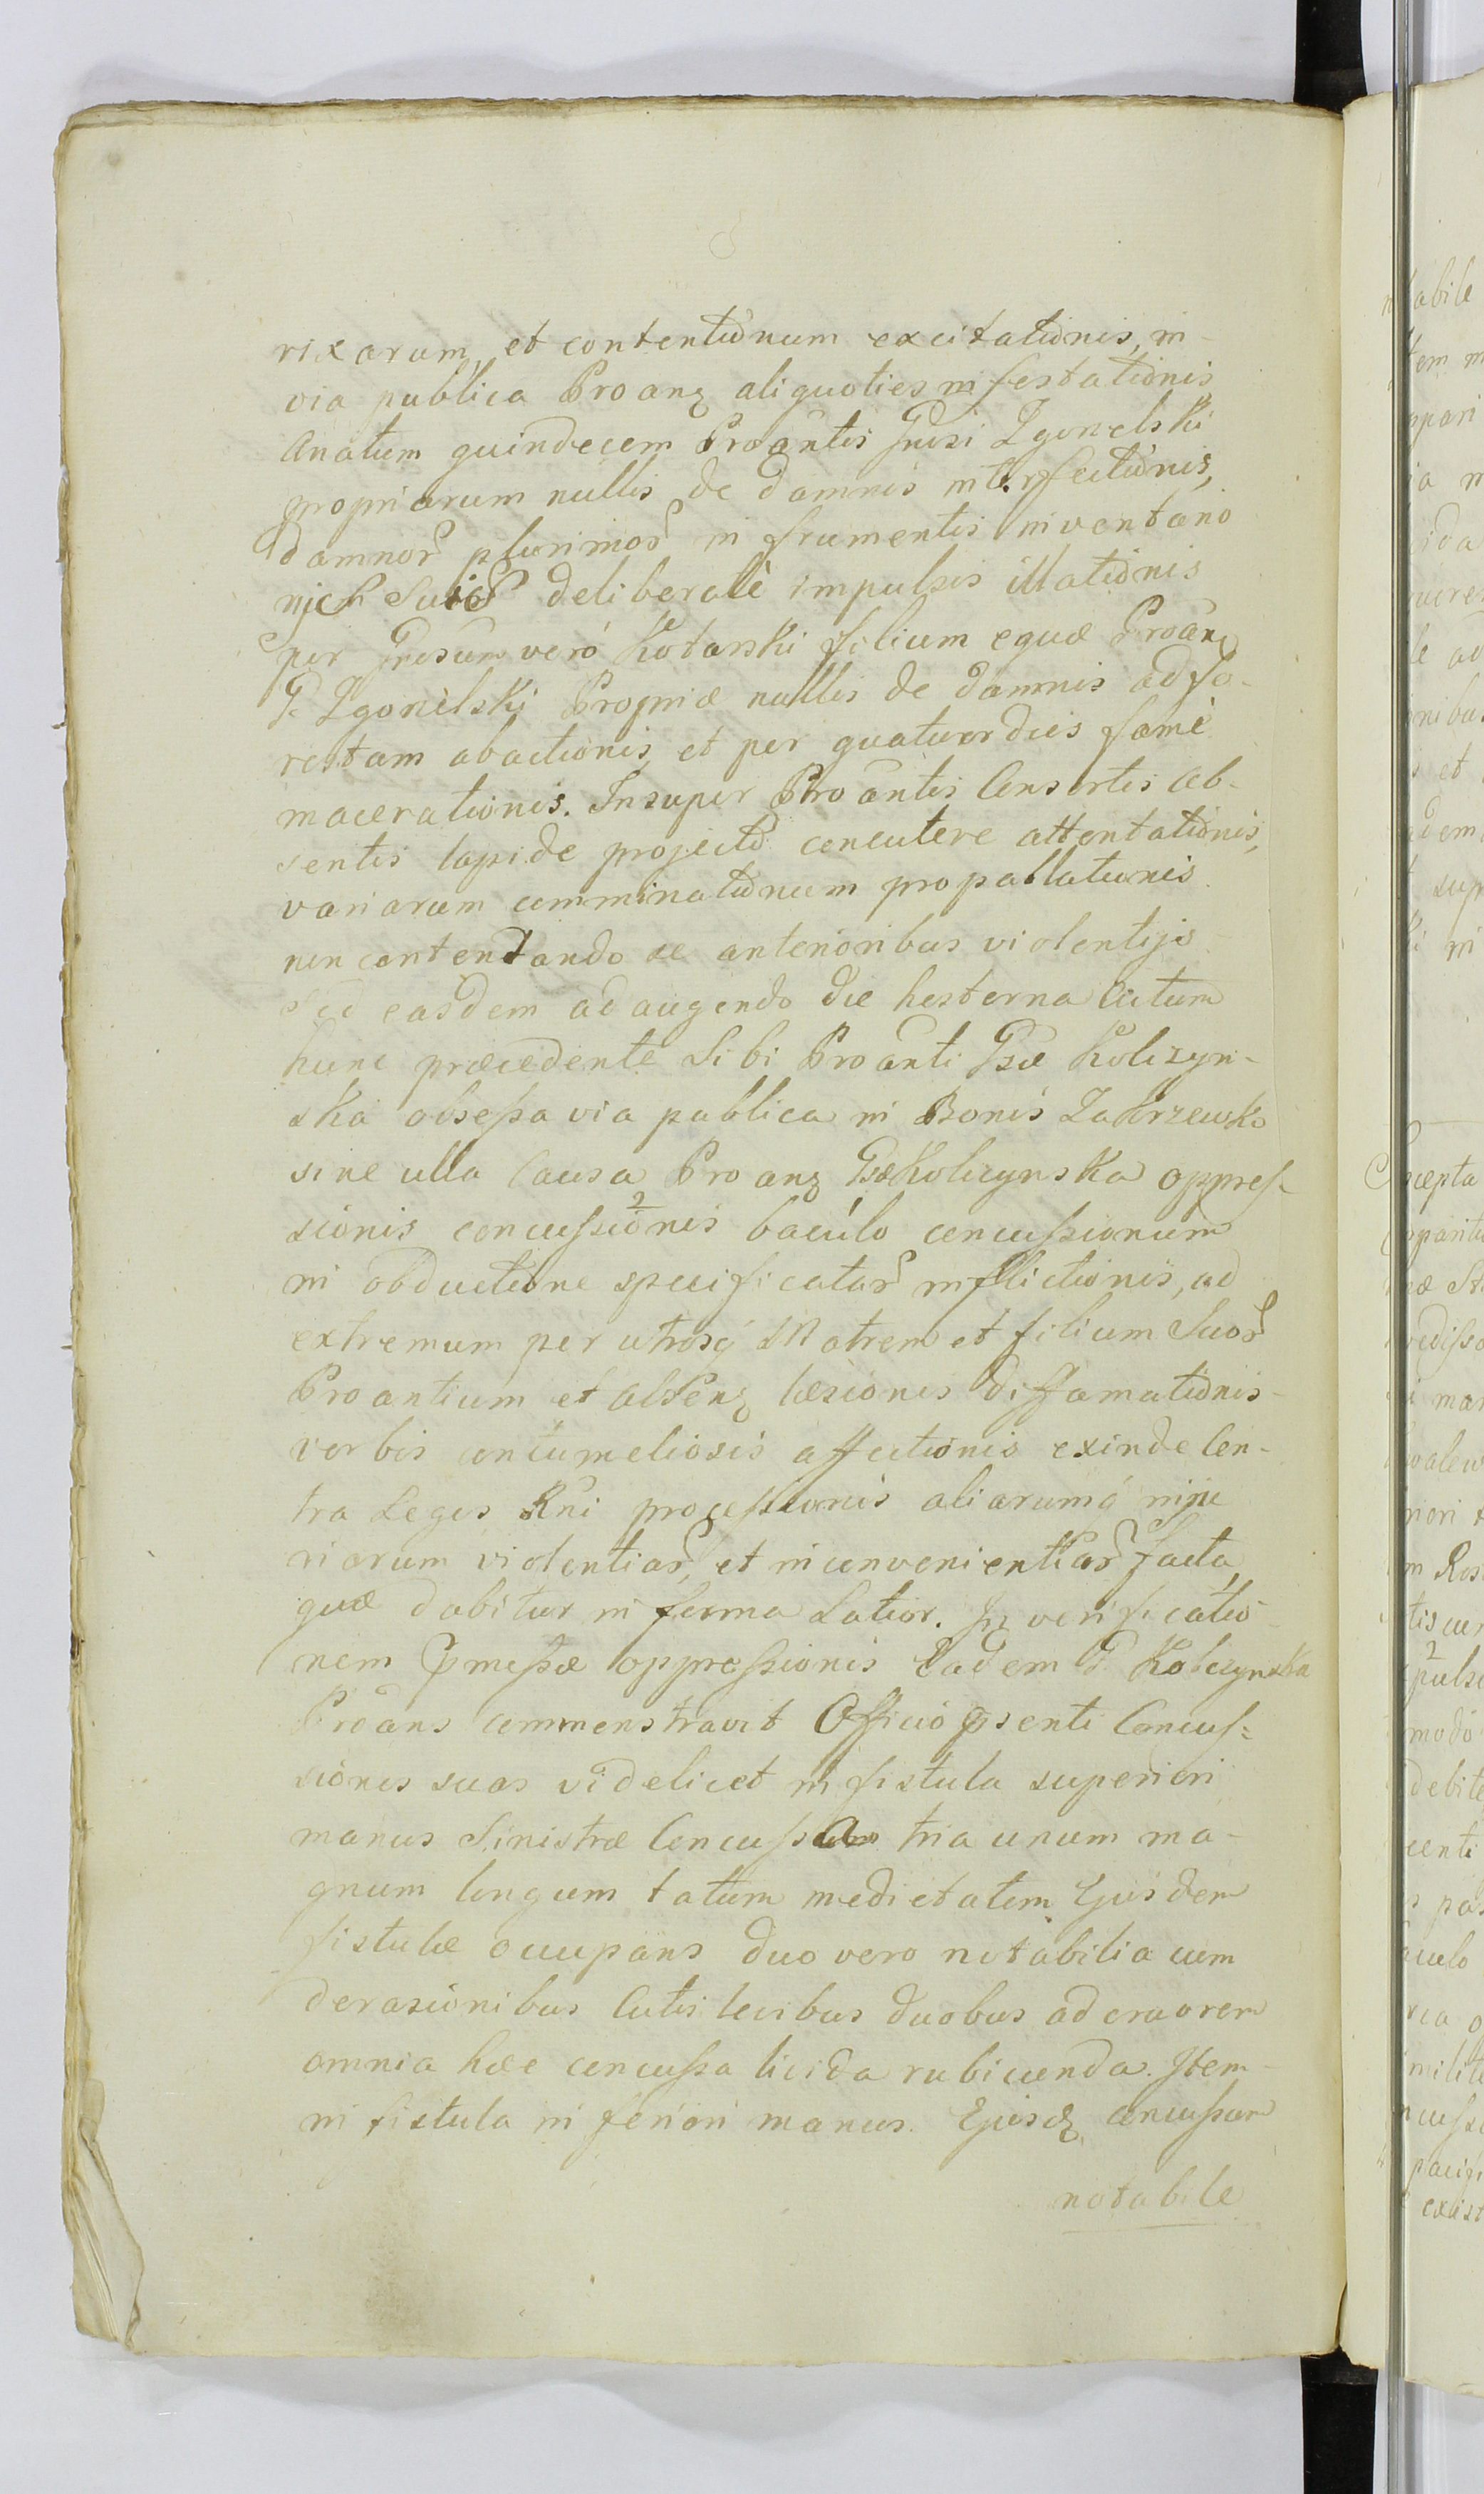 rixarum, et contentionum excitationis, in
via publica Proanꝫ aliquoties infestationis
Anatum quindecem Proantis Gnosi Zgonelski
propriarum nullis de damnis interfectionis,
damnor plurimor in frumentis inventario
nich Suis deliberatè impulsis illationis
per Grosum veró Kotarski filium equæ Proanꝫ
G. Zgonelski Propriæ nullis de damnis ad fo-
restam abactionis, et per quatuor dies famè
macerationis. Insuper Proantis Consortis ab-
sentis lapide projecto concutere attentationis,
variarum comminationum propallationis
non contentando se anterioribus violentijs
sed easdem adaugendo die hesterna Actum
hunc præcedente Sibi Proanti Gsæ Kolczyn-
ska obsessa via publica in Bonis Zakrzewko
sine ulla Causa Proanꝫ Gsæ Kolczynska oppres-
sionis concussionis baculo concussionum
in obductione specificatar inflictionis, ad
extremum per utrosq Matrem et filium Suor
Proantium et absenꝫ læsionis diffamationis
verbis contumeliosis affectionis exinde Con-
tra Leges Rni processionis aliarumq inju
riarum violentiar, et inconvenientiar facta,
quæ dabitur in forma Latior. In verificatio
nem Pmissæ oppressionis Eadem G. Kolczynska
Proans commonstravit Officio Psenti Concus=
siones suas videlicet in fistula superiori
manus Sinistræ Concussa tria unum ma-
gnum longum totam medietatem Ejusdem
fistulæ occupans duo vero notabilia cum
derasionibus Cutis levibus duobus ad cruorem
omnia hæc concussa livida rubicunda. Item
in fistula inferiori manus Ejusdꝫ concussum
notabile